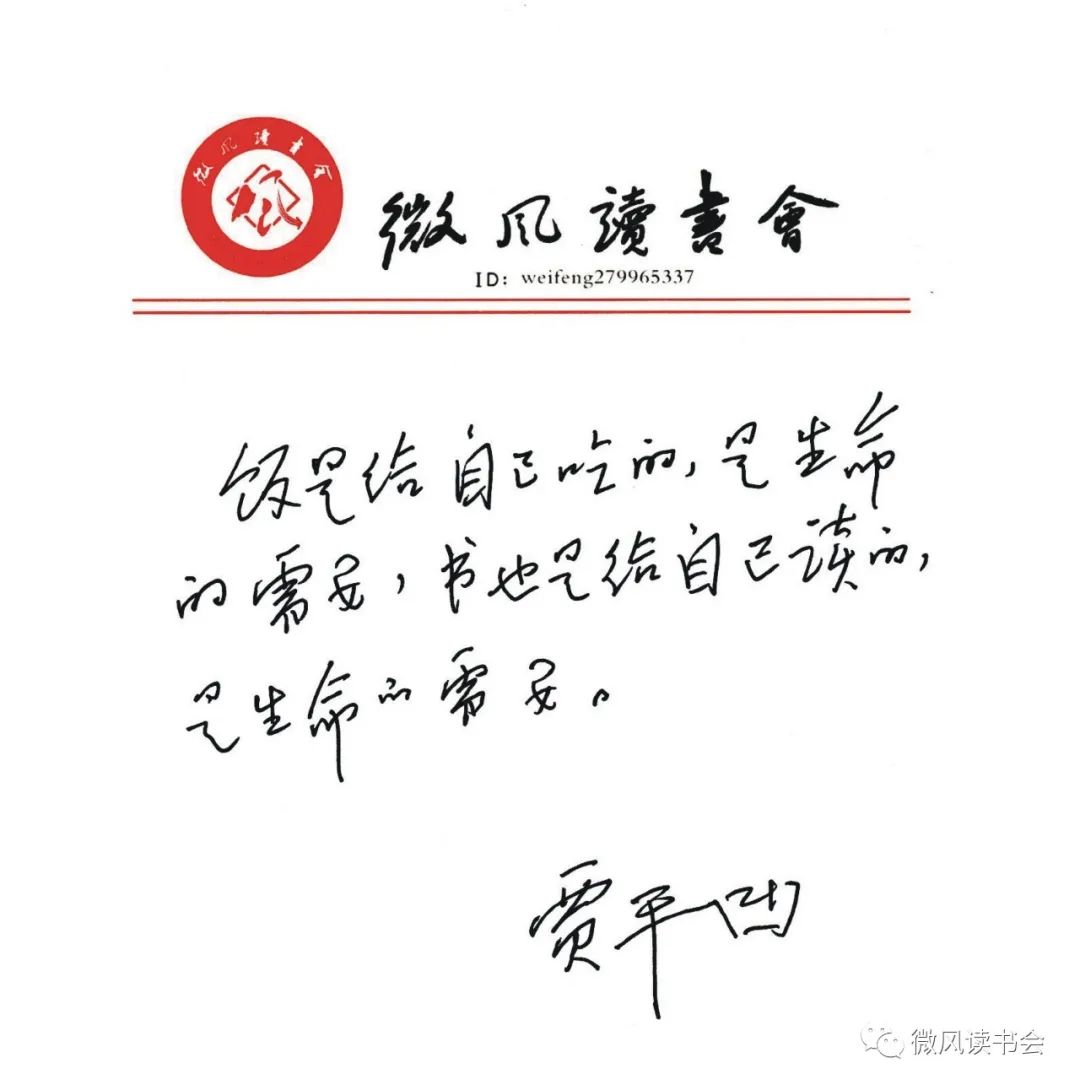 微风讀書會
微风讀書會
ID: weifeng279965337
饭是给自己吃的,是生命
的需要,书也是给自己读的,
是生命的需要。
贾平凹
微风读书会